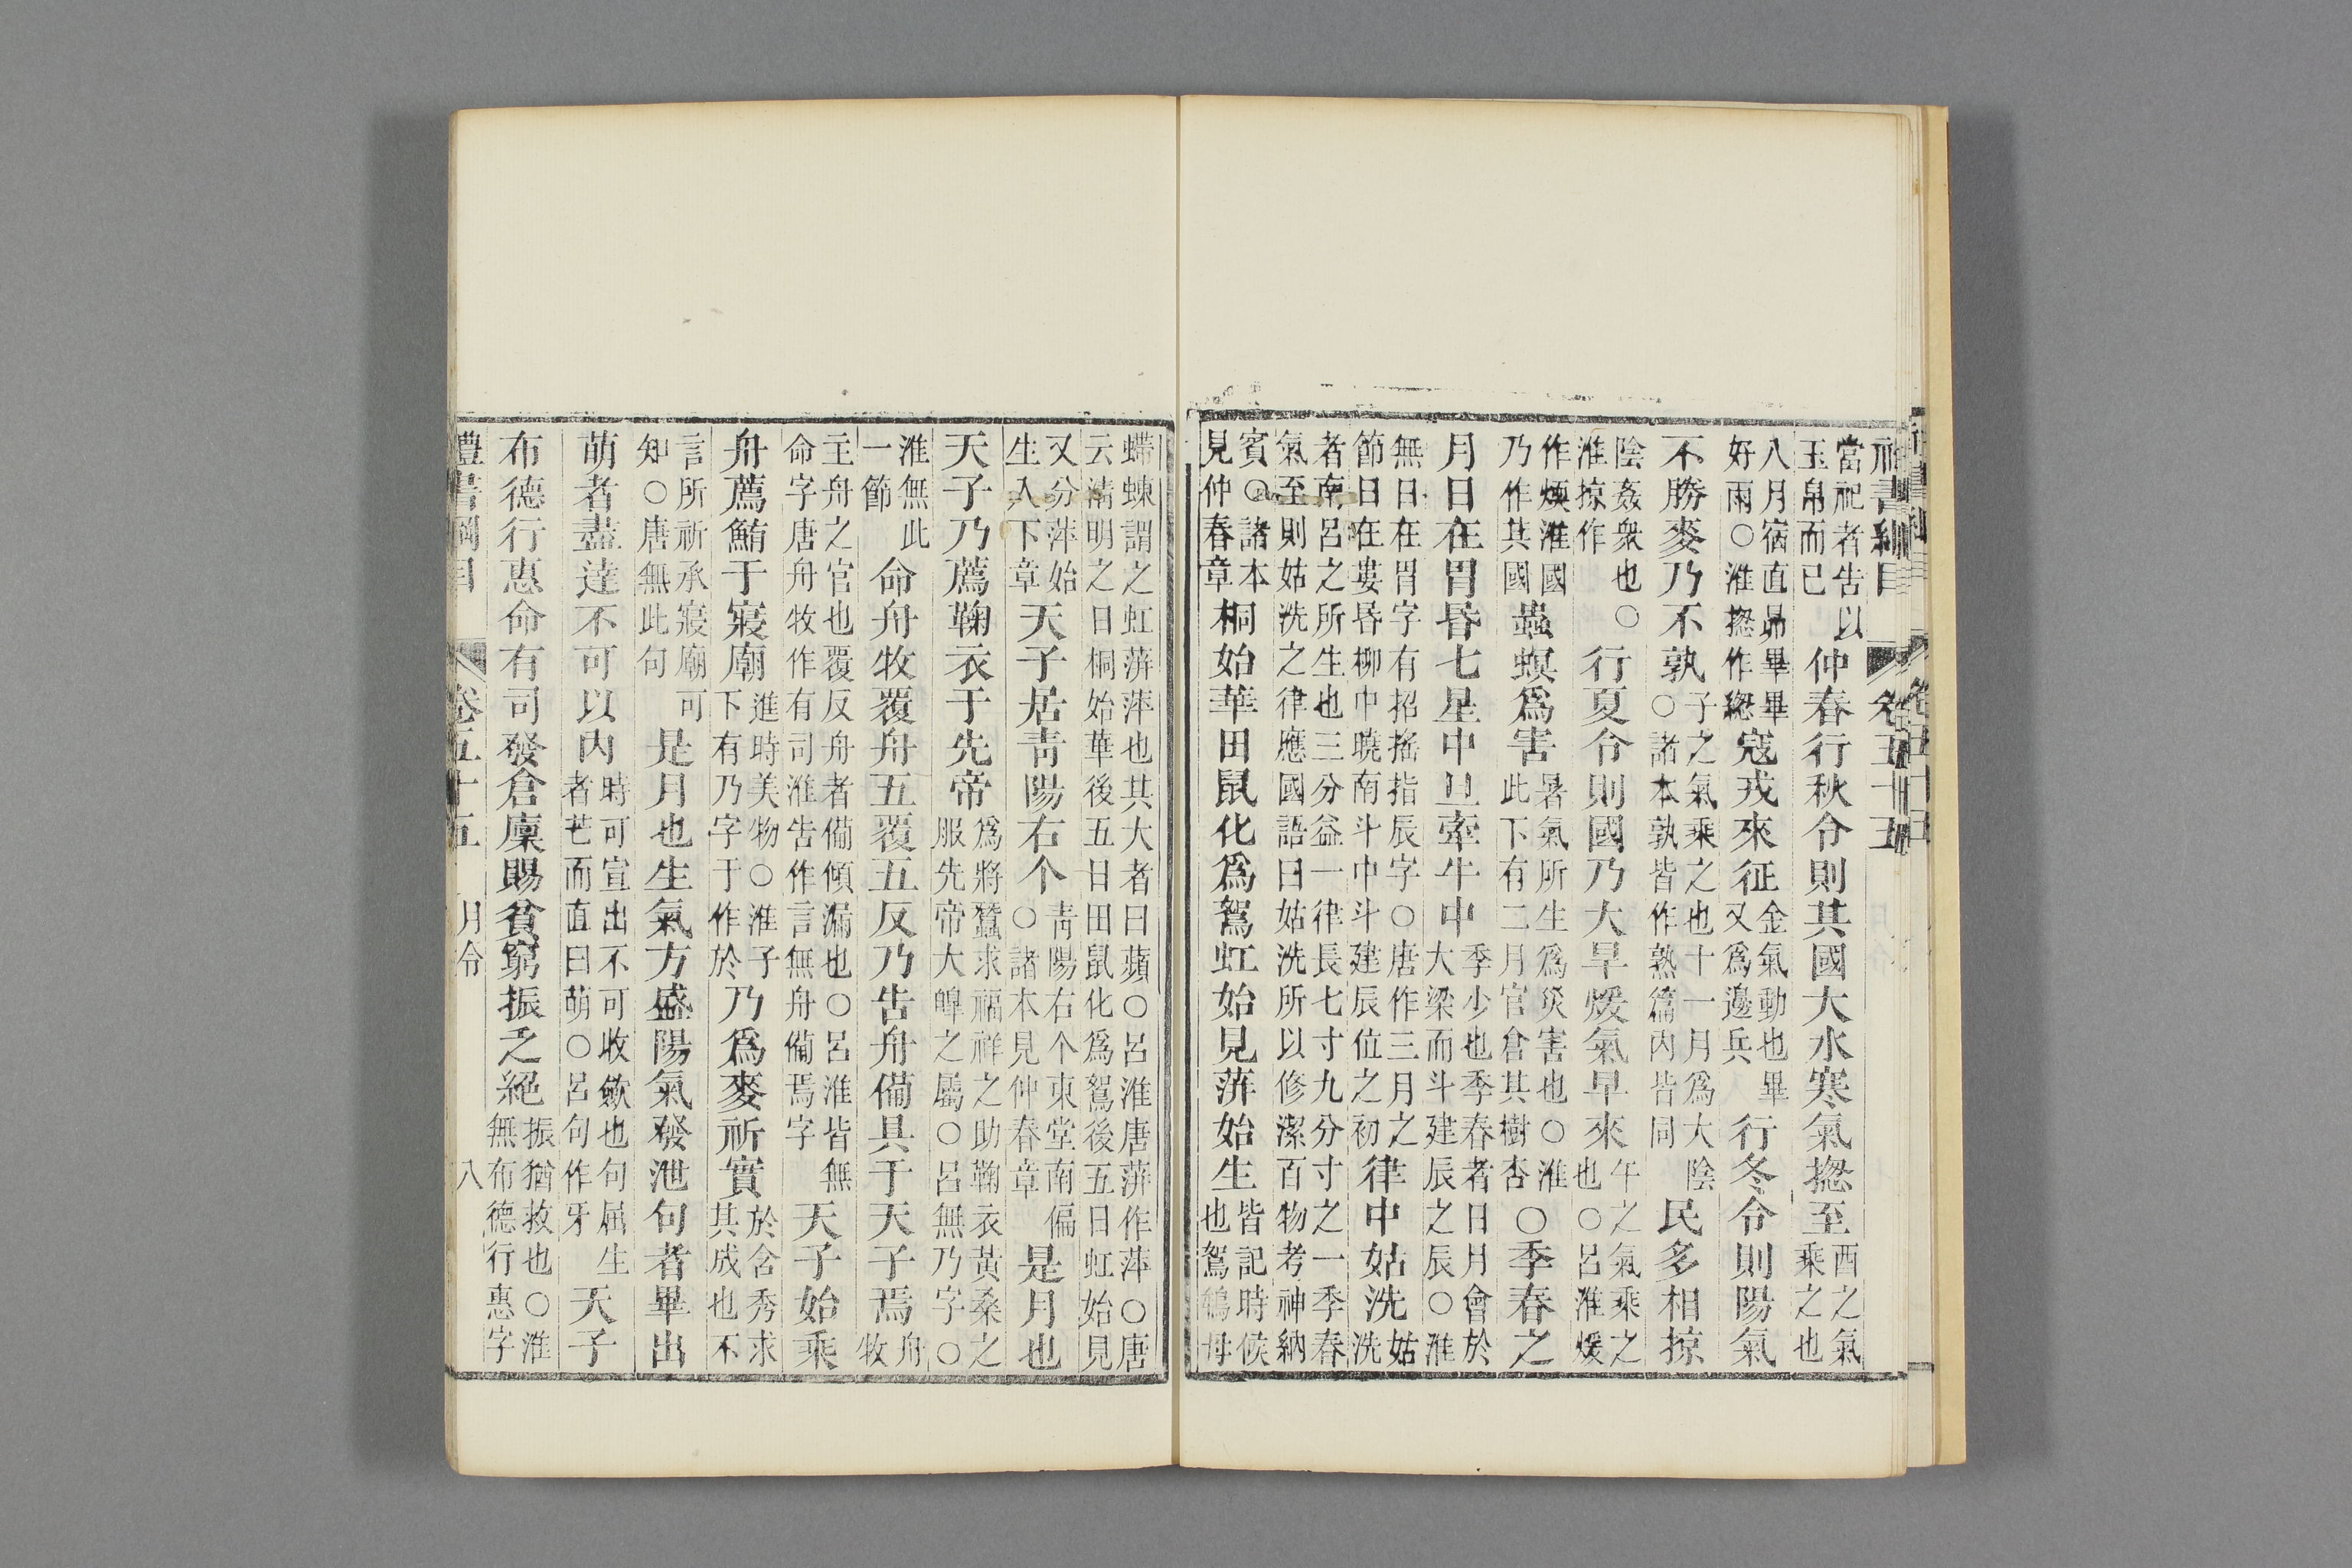 當祀者告以玉帛而已仲春行秋令則其國大水寒氣揔至酉之氣乘之也
八月宿直昴畢畢好雨○淮揔作緫寇戎來征金氣動也畢又爲邊兵行冬令則陽氣
不勝麥乃不孰子之氣乘之也十一月爲大陰○諸本孰皆作熟篇内皆同民多相掠
陰姦衆也○淮掠作行夏令則國乃大旱煖氣早來午之氣乘之也○呂淮煖
作煗淮國乃作其國蟲螟爲害暑氣所生爲災害也○淮此下有二月官倉其樹杏○季春之
月日在胃昏七星中旦牽牛中季少也季春者日月會於大梁而斗建辰之辰○淮
無日在胃字有招搖指辰字○唐作三月之節日在婁昏柳中曉南斗中斗建辰位之初律中姑洗姑洗
者南呂之所生也三分益一律長七寸九分寸之一季春氣至則姑洗之律應國語曰姑洗所以修潔百物考神納
賓○諸本見仲春章桐始華田鼠化爲鴽虹始見蓱始生皆記時候也鴽鴾母
螮蝀謂之虹蓱萍也其大者曰蘋○呂淮唐蓱作萍○唐云淸明之日桐始華後五日田鼠化爲鴽後五日虹始見
又分萍始生入下章天子居靑陽右个靑陽右个東堂南偏○諸本見仲春章是月也
天子乃薦鞠衣于先帝爲將蠶求福祥之助鞠衣黃桑之服先帝大皞之屬○呂無乃字○
淮無此一節命舟牧覆舟五覆五反乃告舟備具于天子焉舟牧
主舟之官也覆反舟者備傾漏也○呂淮皆無命字唐舟牧作有司淮告作言無舟備焉字天子始乘
舟薦鮪于寢廟進時美物○淮子下有乃字于作於乃爲麥祈實於含秀求其成也不
言所祈承寢廟可知○唐無此句是月也生氣方盛陽氣發泄句者畢出
萌者盡達不可以内時可宣出不可收斂也句屈生者芒而直曰萌○呂句作牙天子
布德行惠命有司發倉廩賜貧窮振乏絕振猶救也○淮無布德行惠字
禮書綱目 卷五十五 月令 八